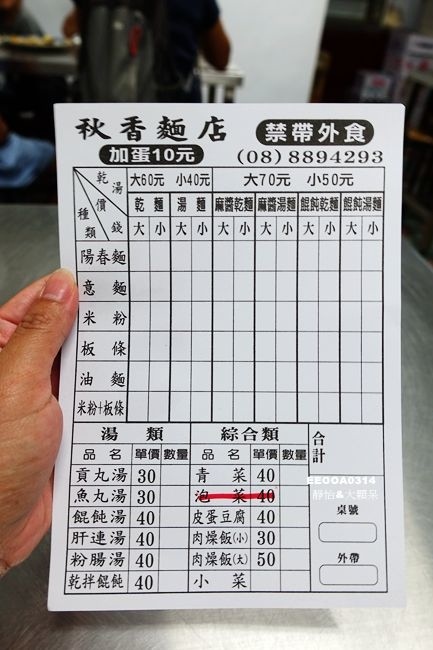 秋香麵店 禁帶外食
加蛋10元 (08) 8894293
乾 湯 價 錢 種 類 大60元 小40元 大70元 小50元
乾麵 湯麵 麻醬乾麵 麻醬湯麵 餛飩乾麵 餛飩湯麵
大 小 大 小 大 小 大 小 大 小 大 小
陽春麵
意麵
米粉
板條
油麵
米粉+板條
湯類 綜合類 合計
品名 單價 數量 品名 單價 數量
貢丸湯 30 青菜 40
魚丸湯 30 泡菜 40
餛飩湯 40 皮蛋豆腐 40
肝連湯 40 肉燥飯(小) 30
粉腸湯 40 肉燥飯(大) 50
乾拌餛飩 40 小菜
桌號
外帶
EEOOA0314
靜怡&大顆呆